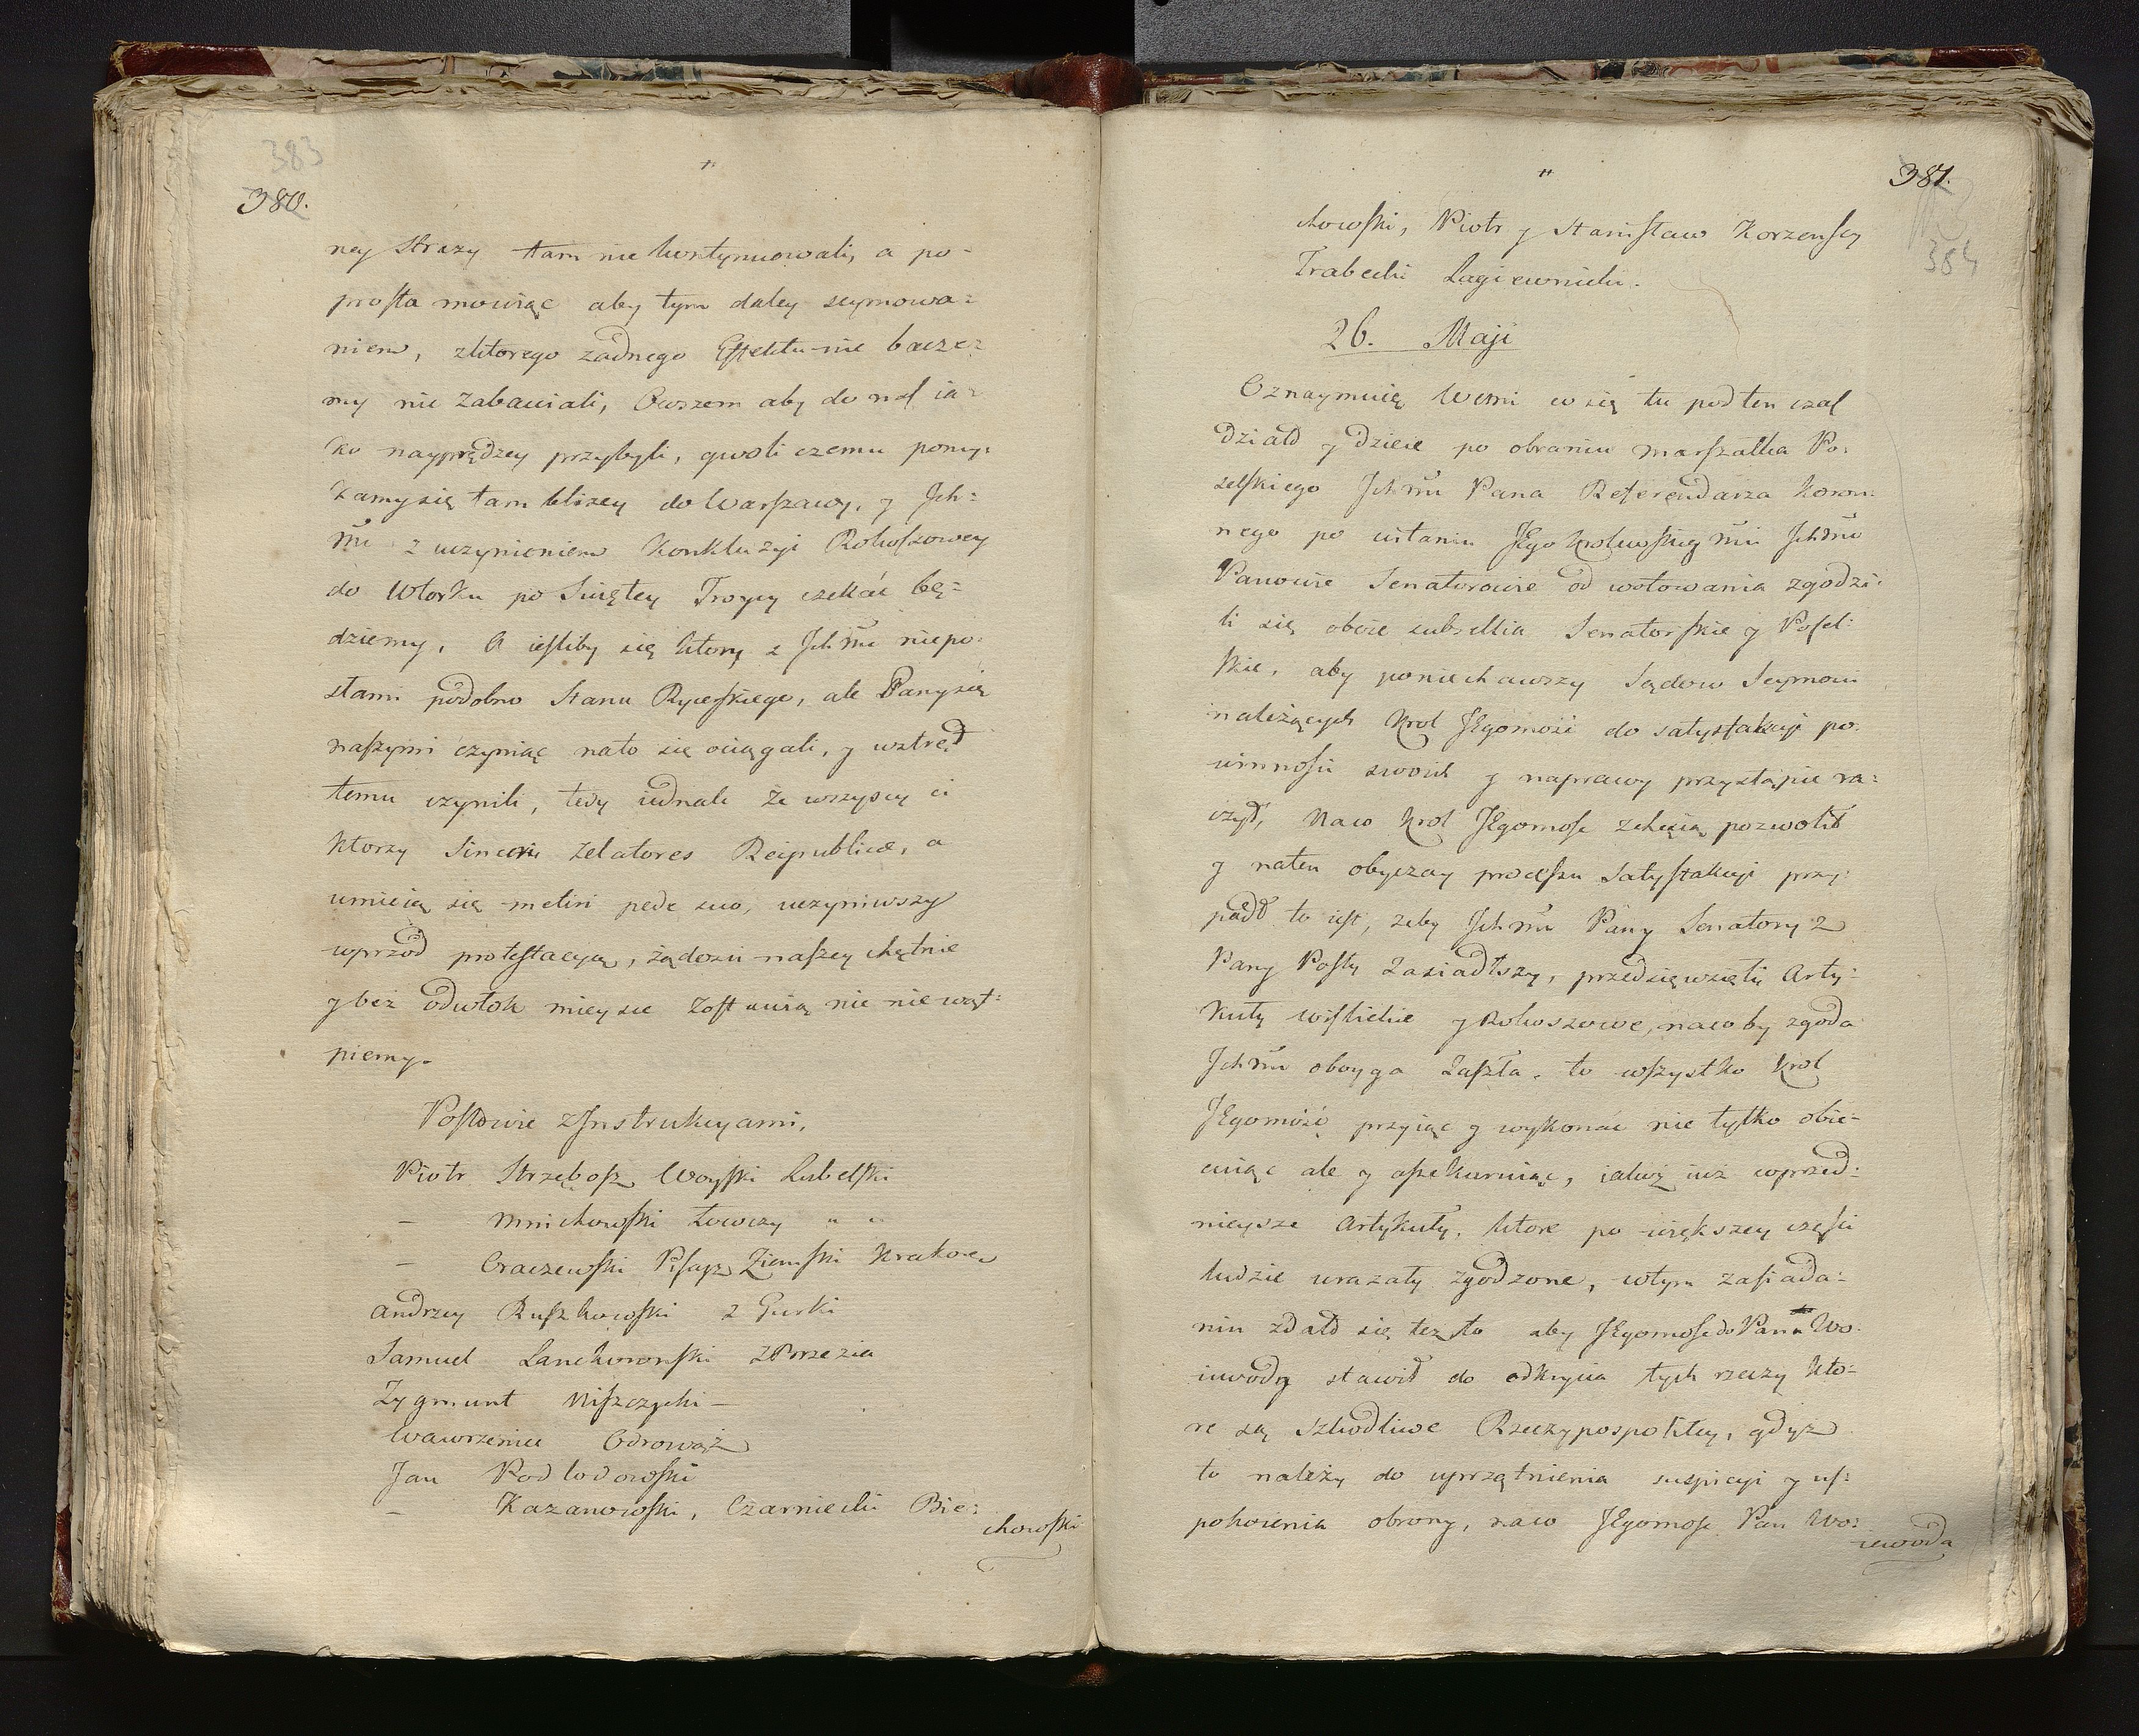 383
380.
ney Strazy tam nie kontynuowali, a po-
prosta mowiąc aby tym daley seymowa-
niem, zktorego zadnego Effektu nie bacze-
my nie zabawiali, Owszem aby do nas ia-
ko nayprędzey przybyli, gwoli czemu pomy-
kamy się tam bliżey do Warszawy, y Jch-
mć z uczynieniem Konkluzyi Rokoszowey
do Wtorku po Swiętey Troycy czekać bę-
dziemy, A iesliby się ktory z Jchmć niepo-
stami podobno Stanu Rycerskiego, ale Pany się
naszymi czyniąc nato się ociągali, y wstręt
temu czynili, tedy iednak że wszyscy ci
Ktorzy Sinceri Zelatores Reipublicæ, a
umieią się metiri pede suo, uczyniwszy
wprzod protestacyą, żądości naszey chętnie
y bez odwłok mieysce zostawią nic nie wąt-
piemy.
Posłowie z Jnstrukcyami.
Piotr Strzębosz Woyski Lubelski
- Mnichowski Łowczy " "
- Craczewski Pisarz Ziemski Krakow
Andrzey Ruszkowski z Gurki
Samuel Lanckoronski z Brzezia
Zygmunt Niszczycki -
Wawrzeniec Odrowąż
Jan Podlodowski
- Kazanowski, Czarniecki Bie-
chowski
381.
384
chowski, Piotr y Stanisław Korzenscy
Trabecki Lagiewnicki.
26. Maji
Oznaymuię Wmci co się tu pod ten czas
działo y dzieie po obraniu Marszałka Po-
selskiego Jchmć Pana Referendarza Koron-
nego po witaniu JEgo Krolewskiey mći Jchmć
Panowie Senatorowie od wotowania zgodzi-
li się oboie subsellia Senatorskie y Posel-
skie, aby poniechawszy Sądow Seymowi
należących Krol JEgomość do satysfakcyi po-
winnosci swoich y naprawy przystąpić ra-
czył, Naco Krol JEgomość zchęcią pozwolił
y naten obyczay processu Satysfakcyi przy-
padł to iest, zeby Jchmć Pany Senatory z
Pany Posły Zasiadłszy, przedsięwzięli Arty-
kuły wislickie y Rokoszowe, naco by zgoda
Jchmć oboyga Zaszła, to wszystko Krol
JEgomość przyiąć y wykonać nie tylko obie-
cuiąc ale y assekuruiąc, iakoż iuż wprzed-
nieysze Artykuły, ktore po większey części
ludzie urazały zgodzone, wtym zasiada-
niu zdało się też to aby JEgomość do Pana Wo-
iewody stawił do odkrycia tych rzeczy kto-
re są szkodliwe Rzeczypospolitey, gdyż
to należy do uprzątnienia suspicyi y us-
pokoienia obrony, naco JEgomość Pan Wo-
iewoda